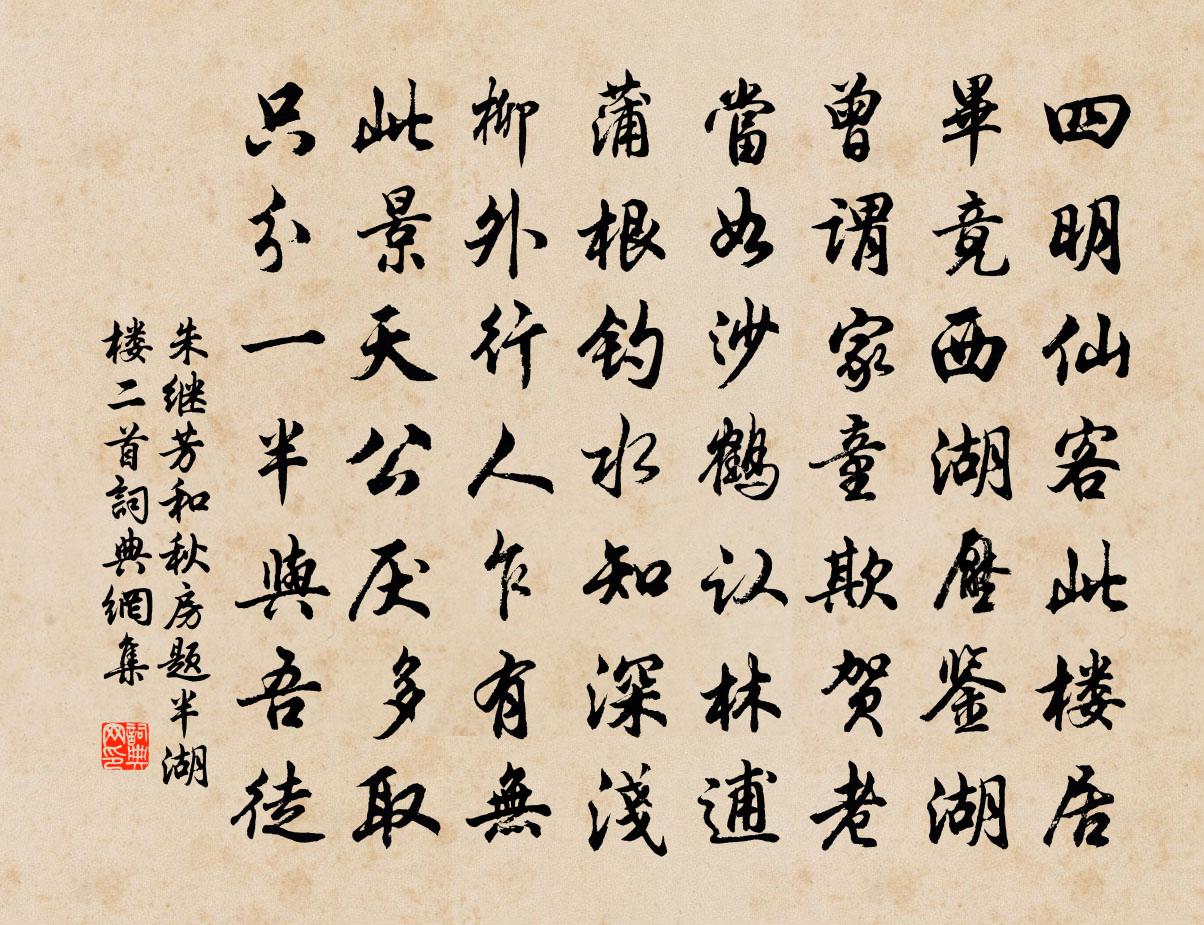 四明仙客此楼居
畢竟西湖壓鉴湖
曾谓家童欺贺老
當如沙鶴认林逋
蒲根钓水知深淺
柳外行人乍有無
此景天公厌多取
只分一半與吾徒
朱继芳和秋房题半湖
楼二首詞典網集
詞典
网印